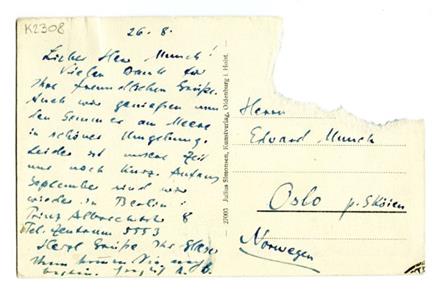 K2308
26. 8.
Lieber Herr Munch!
Vielen Dank für
Ihre freundlichen Grüße.
Auch wir genießen nun
den Sommer am Meere
in schöner Umgebung.
Leider ist unsere Zeit
nur noch kurz. Anfang
September sind wir
wieder in Berlin:
Prinz Albrechtstr 8
Tel. Zentrum 5553
Herzl. Grüße Ihr Glaser
27003 Julius Simonsen, Kunstverlag, Oldenburg i. Holst.
Herrn
Edvard Munch
Oslo p. Sköien
Norwegen